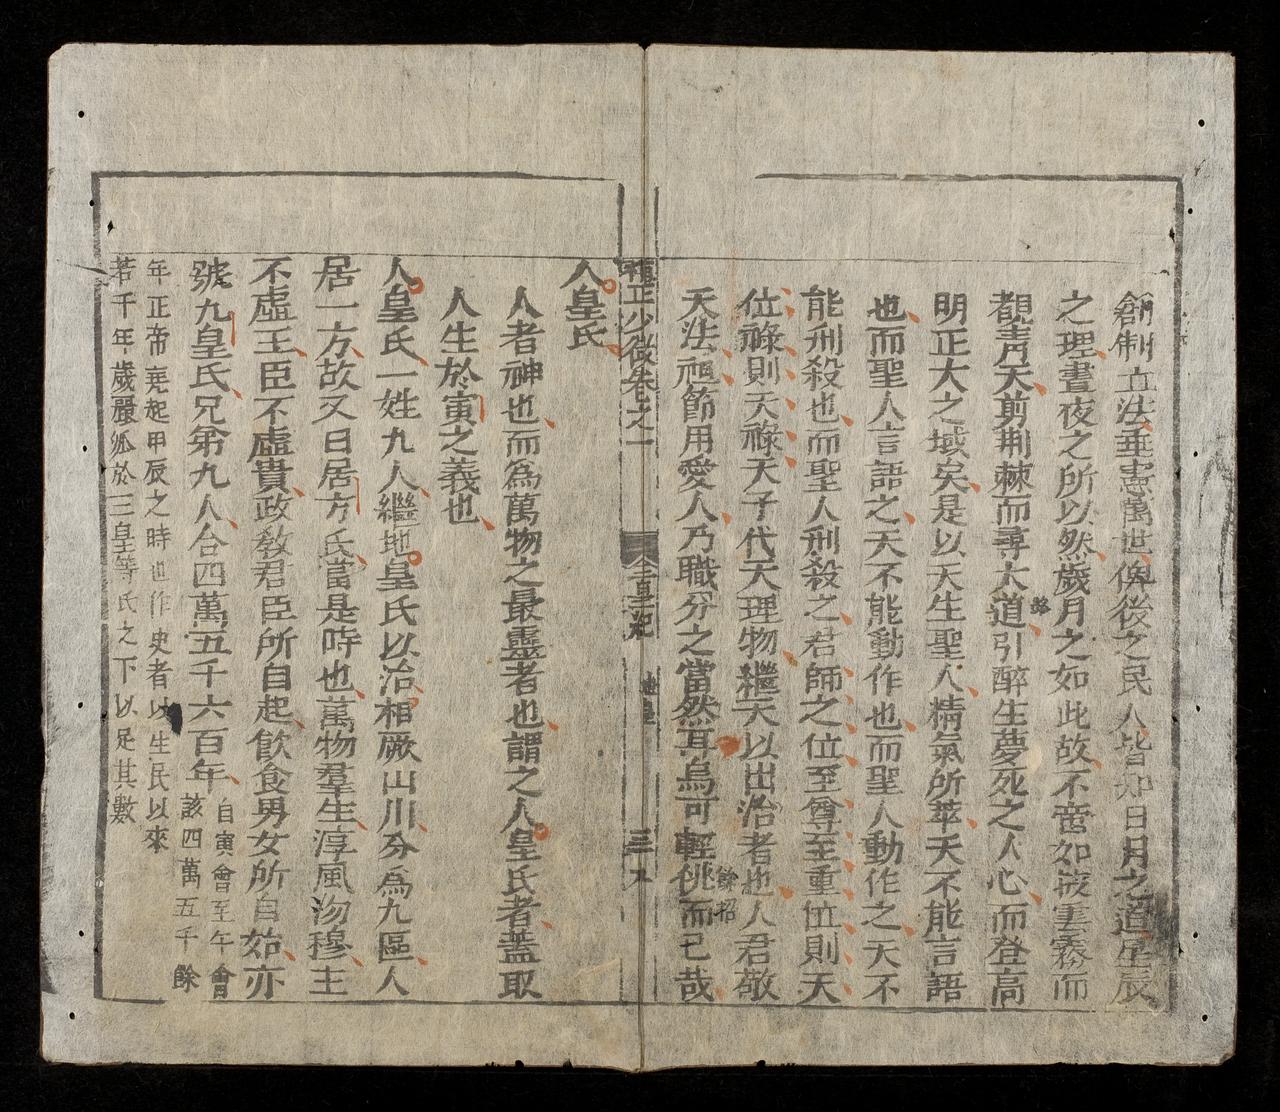 創制立法垂憲萬世俾後之民人皆知日月之道星辰
之理晝夜之所以然歲月之如此故不啻如披雲霧而
覩青天剪荆棘而尋大道引醉生夢死之人心而登高
明正大之域矣是以天生聖人精氣所萃天不能言語
也而聖人言語之天不能動作也而聖人動作之天不
能刑殺也而聖人刑殺之君師之位至尊至重位則天
位祿則天祿天子代天理物繼天以出治者也人君敬
天法祖節用愛人乃職分之當然耳烏可輕佻而已哉
餘招
正少微卷之一
三
人皇氏
人者神也而為萬物之最靈者也謂之人皇氏者蓋取
人生於寅之義也
人皇氏一姓九人繼地皇氏以治相厥山川分為九區人
居一方故又曰居方氏當是時也萬物羣生淳風沕穆主
不虛王臣不虛貴政教君臣所自起飲食男女所自始亦
號九皇氏兄弟九人合四萬五千六百年
自寅會至午會
該四萬五千餘
年正帝堯起甲辰之時也作史者以生民以來
若千年歲嚴派於三皇等氏之下以足其數